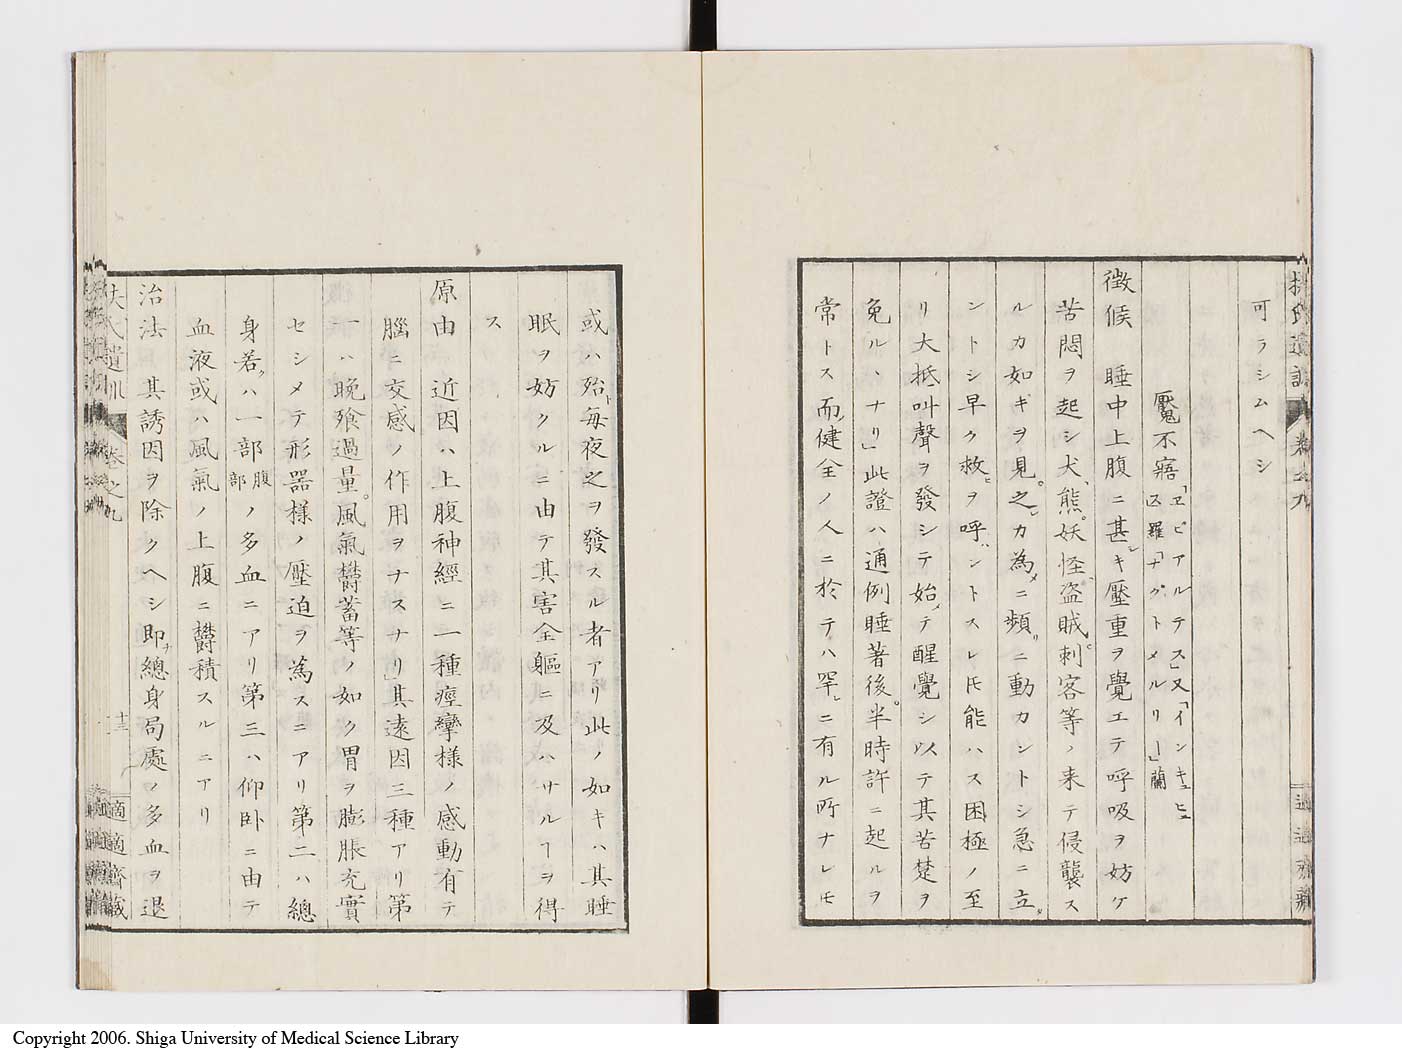 可ラシムヘシ
魘不寤「ヱピアルテス」又「インキュヒュ
ス羅「ナグトメルリー」蘭
徴候 睡中上腹ニ甚シキ壓重ヲ覺エテ呼吸ヲ妨ケ
苦悶ヲ起シ犬、熊。妖怪、盗賊、刺客等ノ来テ侵襲ス
ルカ如キヲ見。之レカ為メニ頻リニ動カントシ急ニ立タ
ントシ早ク救ヒヲ呼ハントスレ𪜈能ハス困極ノ至
リ大抵叫聲ヲ發シテ始メテ醒覺シ以テ其苦楚ヲ
免ルヽナリ」此證ハ通例睡著後。半時許ニ起ルヲ
常トス而シ健全ノ人ニ於テハ罕レニ有ル所ナレ𪜈
或ハ殆ト毎夜之ヲ發スル者アリ此ノ如キハ其睡
眠ヲ妨クルニ由テ其害全軀ニ及ハサルヿヲ得
ス
原由 近因ハ上腹神經ニ一種痙攣樣ノ感動有テ
腦ニ交感ノ作用ヲナスナリ」其遠因三種アリ第
一ハ晩飱過量。風氣欝蓄等ノ如ク胃ヲ膨脹充實
セシメテ形器樣ノ壓迫ヲ為スニアリ第二ハ總
身若クハ一部腹部ノ多血ニアリ第三ハ仰臥ニ由テ
血液或ハ風氣ノ上腹ニ欝積スルニアリ
治法 其誘因ヲ除クヘシ即チ總身局處ノ多血ヲ退
扶氏遺訓 卷之九 十三 適適齋藏